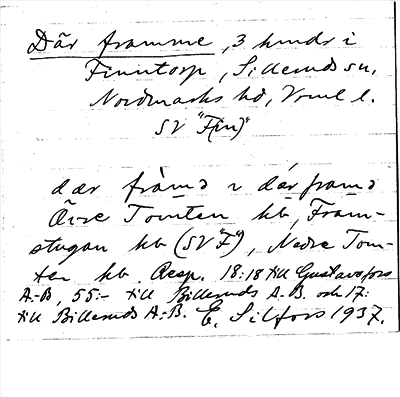 Där framme, 3 hmdr i
Finntorp, Silleruds sn,
Nordmarks hd, Vrml l.
SV "F(in)"
dær fràmə i dár framə
Övre Tomten hb, Fram-
stugan hb (SV "F"), Nedre Tom-
ten hb. Resp. 18:18 till Gustavsfors
A.-B, 55:- till Billeruds A.B. och 17:
till Billeruds A.-B. E. Silfors 1937.